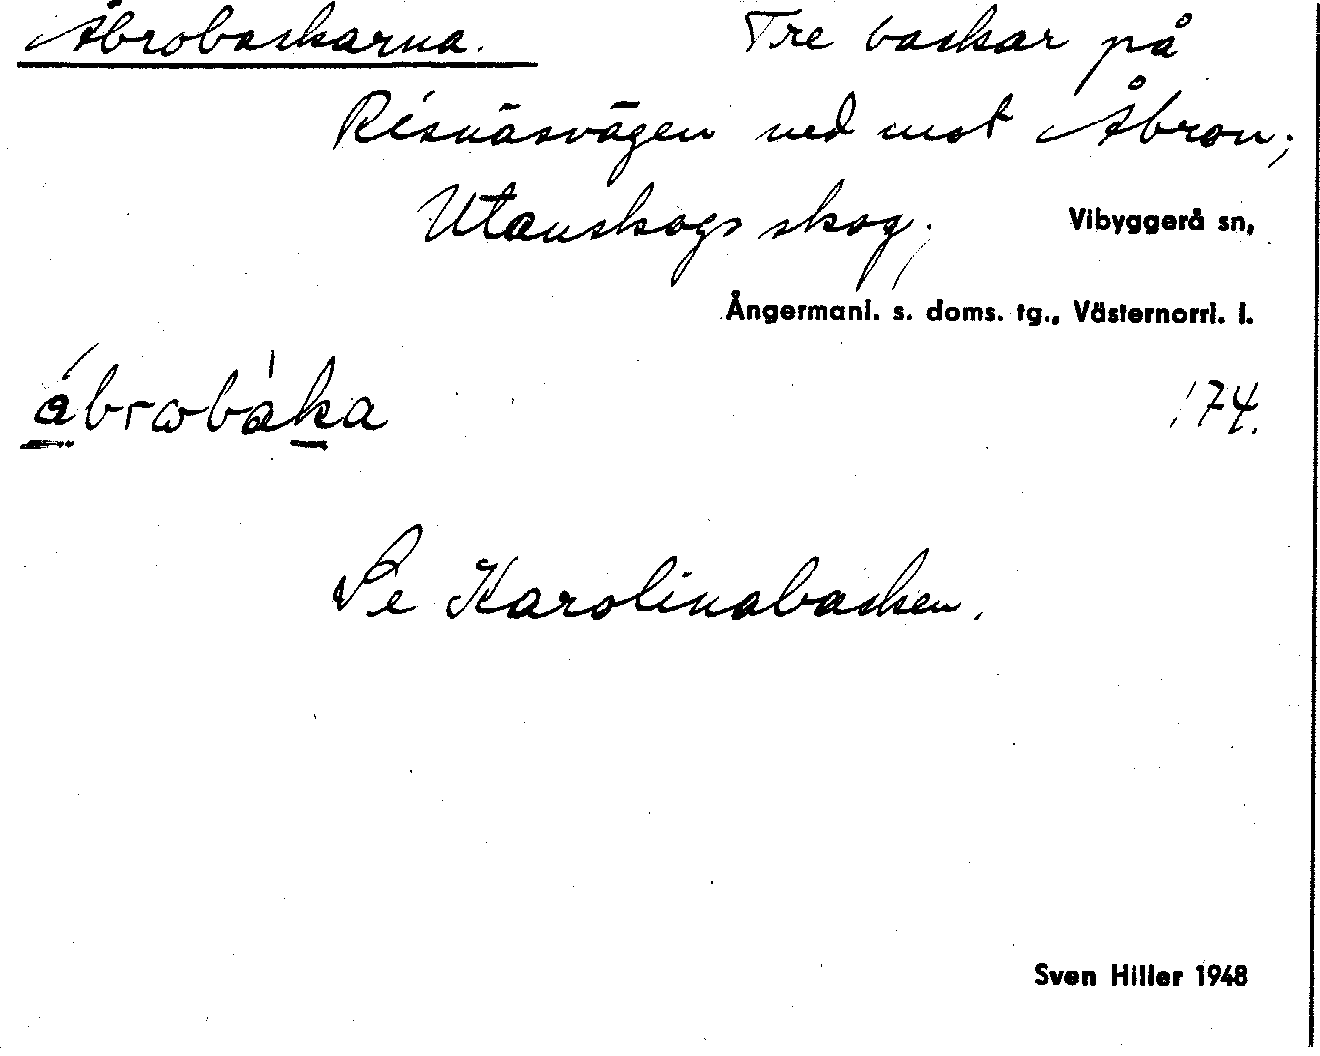 Åbrobackarna. Tre backar på
Risnäsvägen ned mot Åbron;
Utanskogs skog; Vibyggerå sn,
Ångermanl. s. doms. tg., Västernorrl. l.
åbrωbàka 174.
Se Karolinabacken.
Sven Hiller 1948